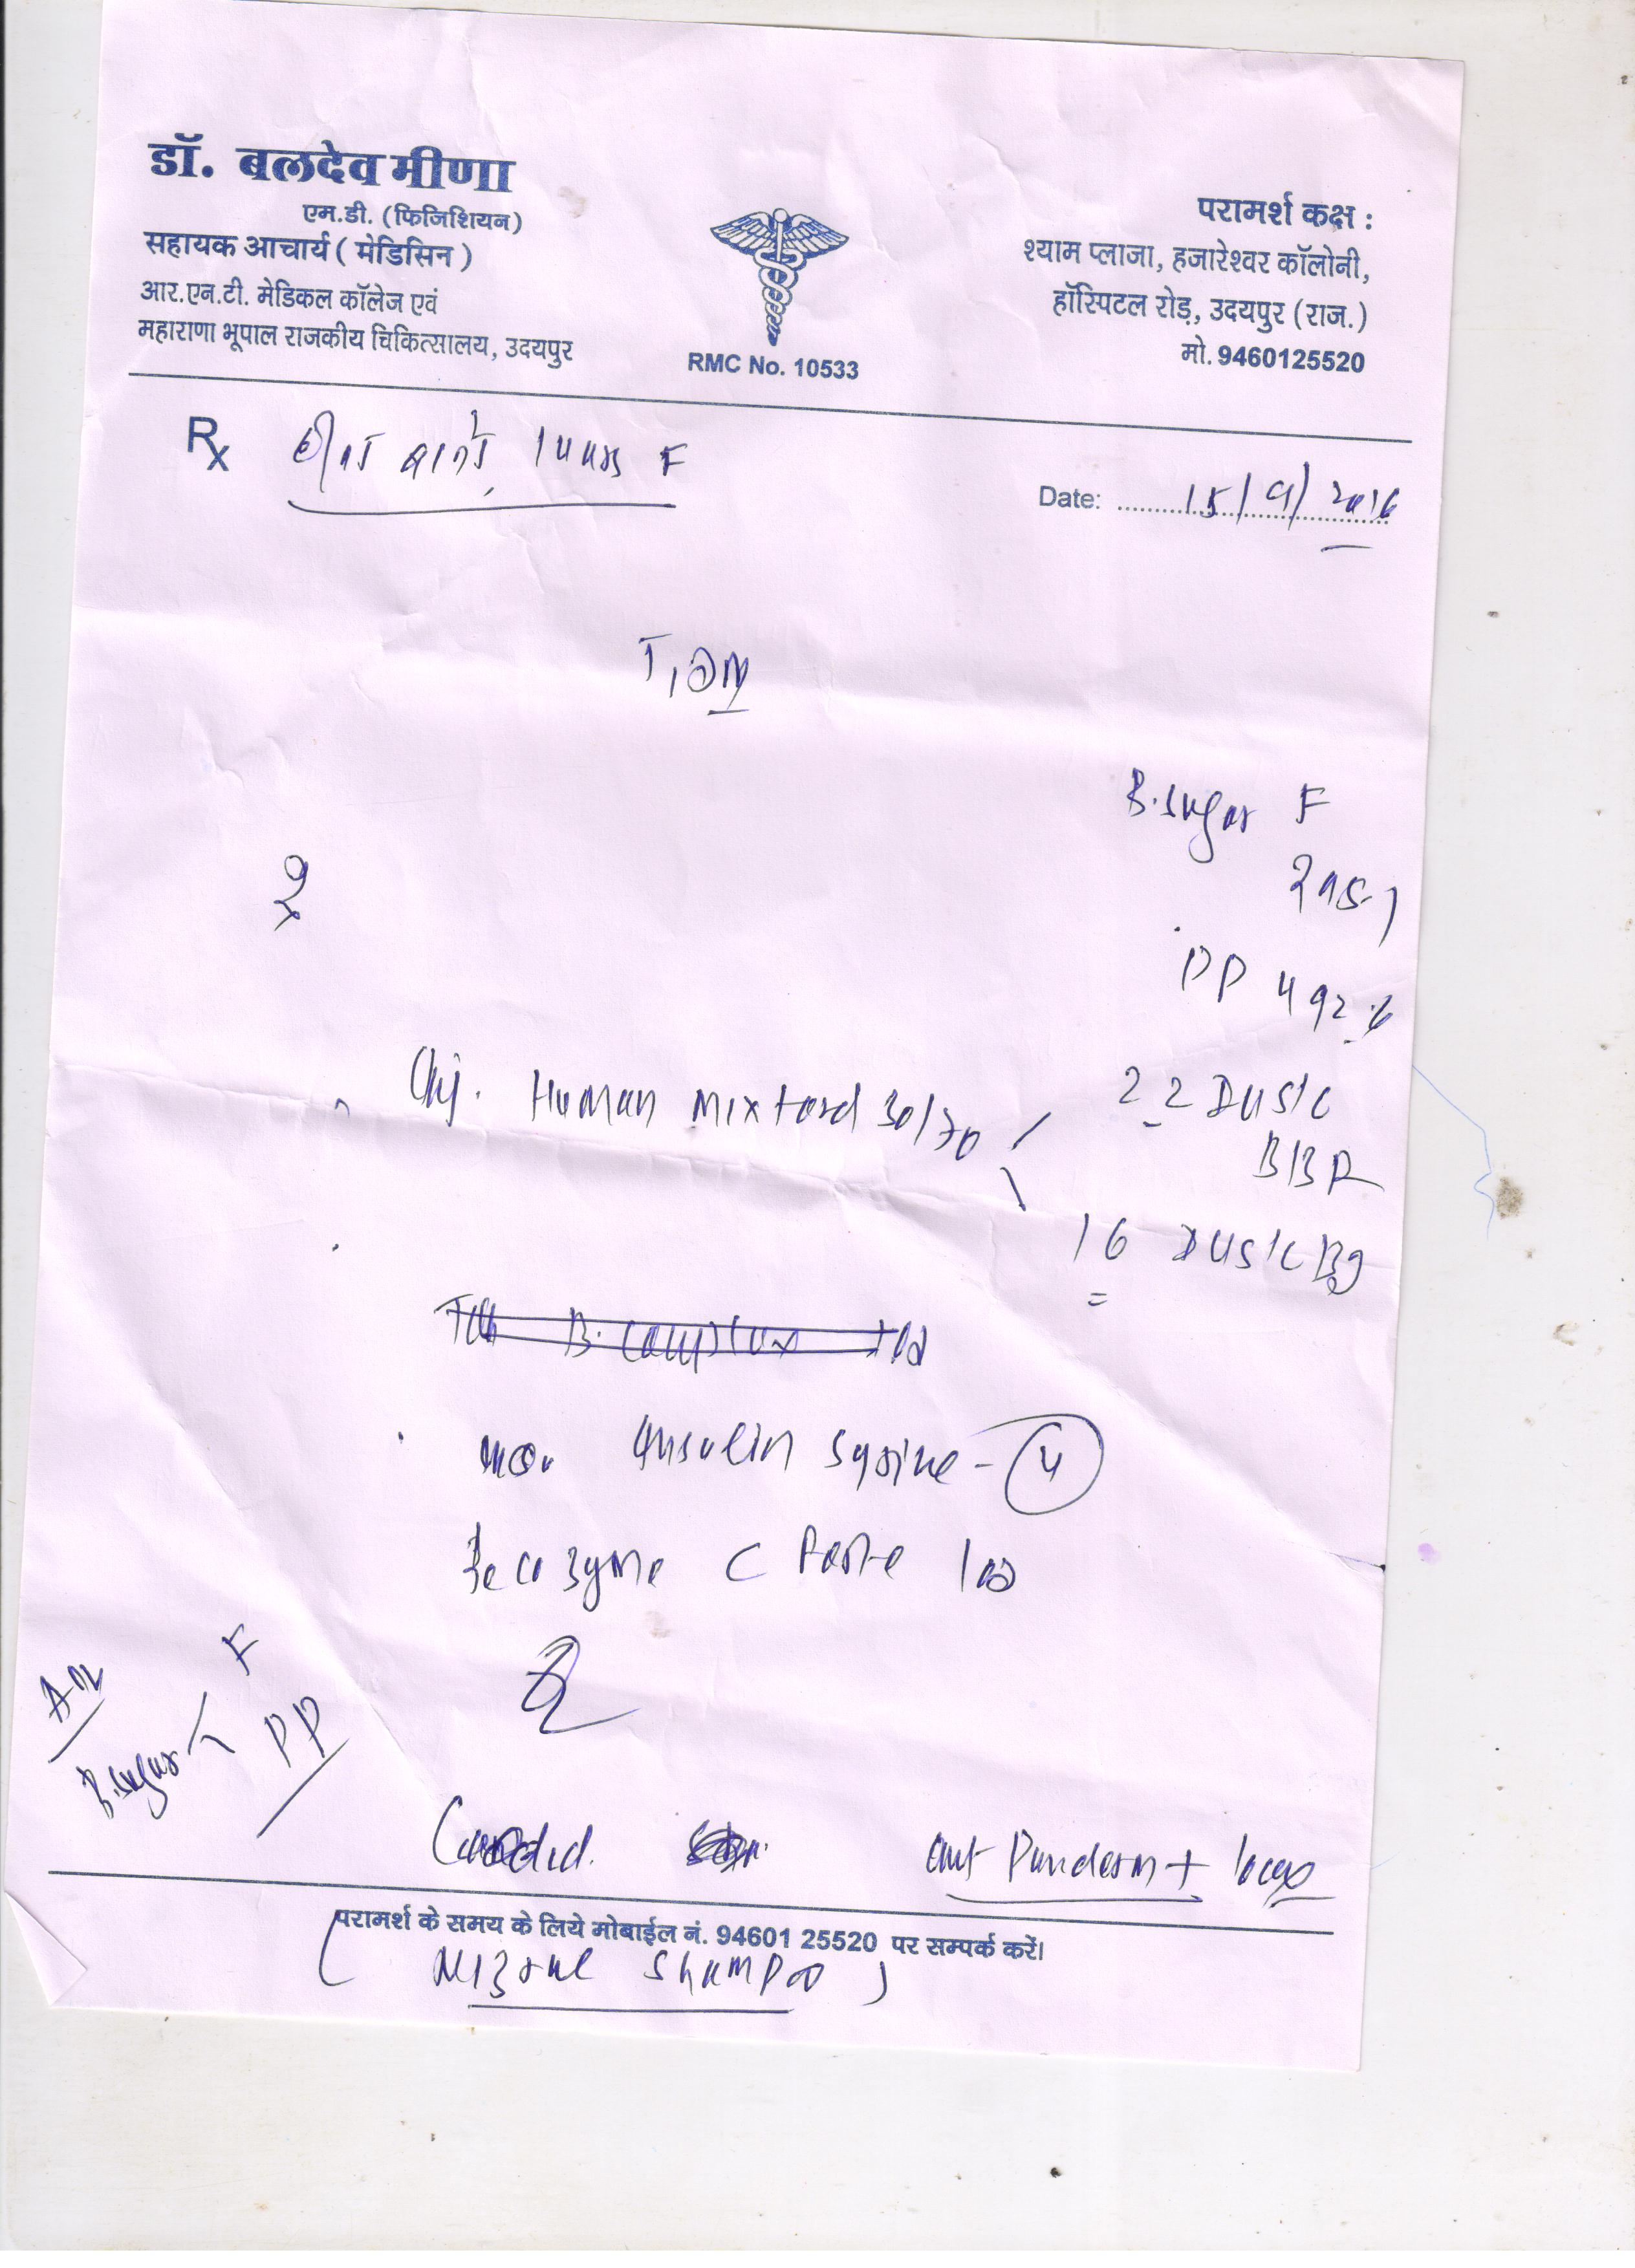 डॉ. बलदेव मीणा
एम.डी. (फिजिशियन)
सहायक आचार्य ( मेडिसिन )
आर.एन.टी. मेडिकल कॉलेज एवं
महाराणा भूपाल राजकीय चिकित्सालय, उदयपुर
RMC No. 10533
परामर्श कक्ष :
श्याम प्लाजा, हजारेश्वर कॉलोनी,
हॉस्पिटल रोड़, उदयपुर (राज.)
मो. 9460125520
Rx F
Date: 15/9/2016
B.sugar F
PP 492.6
Inj. Human mixtard 30/70
22 IU S/C
BBF
16 IU S/C
Tab B. complex
Insulin syrine - 4
Becozyme C Forte
F
B.sugar PP
Candid.
oint Panderm + local
परामर्श के समय के लिये मोबाईल नं. 94601 25520 पर सम्पर्क करें।
( Nizral shampoo )